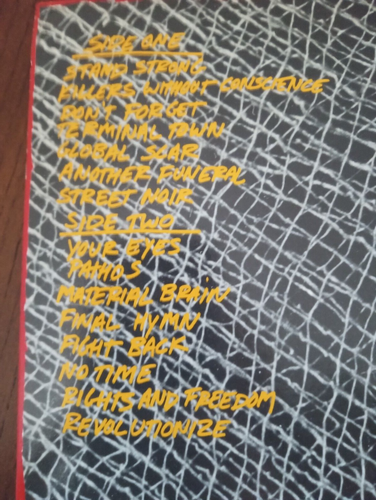 SIDE ONE
STAND STRONG
KILLERS WITHOUT CONSCIENCE
DON'T FORGET
TERMINAL TOWN
GLOBAL SCAR
ANOTHER FUNERAL
STREET NOIR
SIDE TWO
YOUR EYES
PATHOS
MATERIAL BRAIN
FINAL HYMN
FIGHT BACK
NO TIME
RIGHTS AND FREEDOM
REVOLUTIONIZE